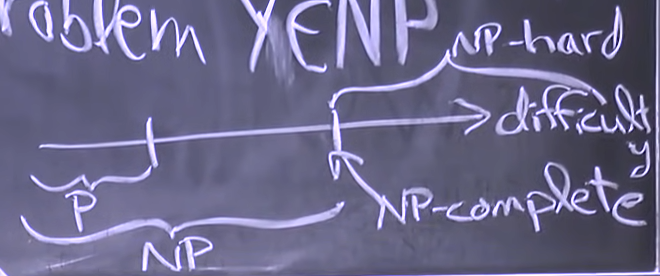 roblem X∈NP
NP-hard
difficulty
P
NP-complete
NP